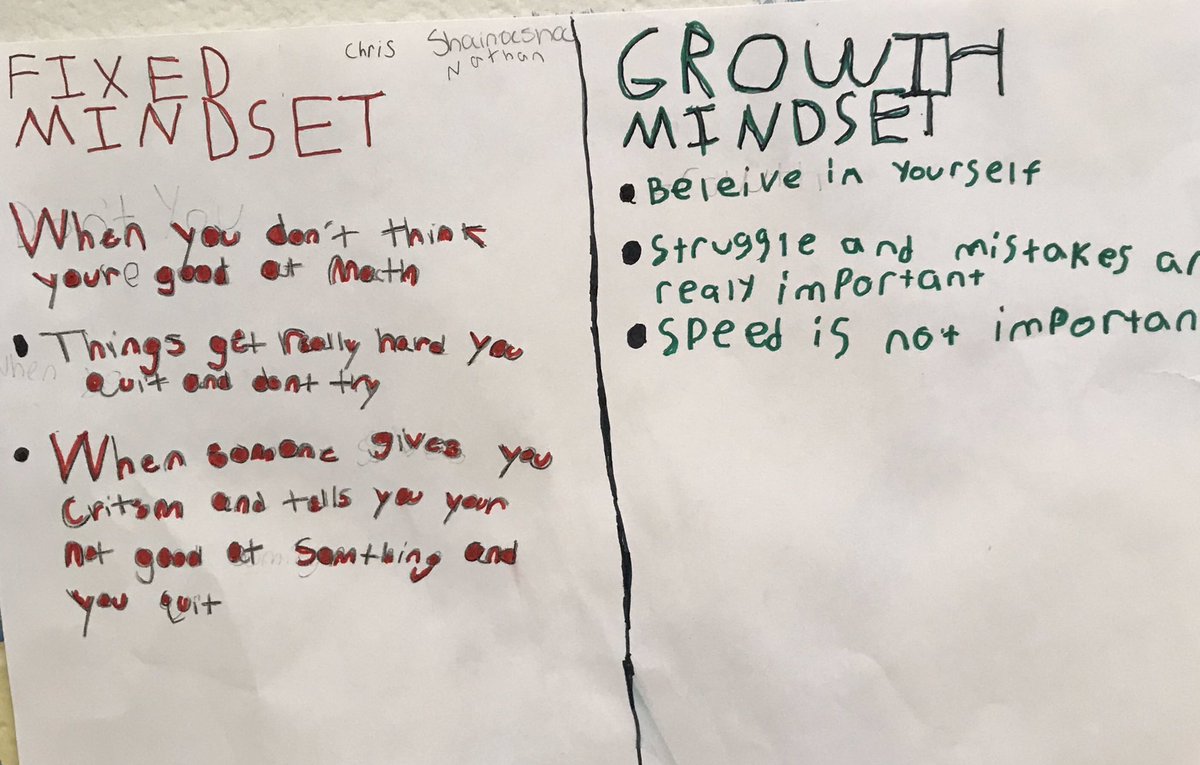 FIXED
MINDSET
Chris
Nathan
When you don't think
you're good at Math
Things get really hard you
quit and dont try
When
When somone gives you
Critsm and tells you your
not good at somthing and
you quit
GROWTH
MINDSET
Beleive in yourself
Struggle and mistakes ar
realy important
Speed is not importan